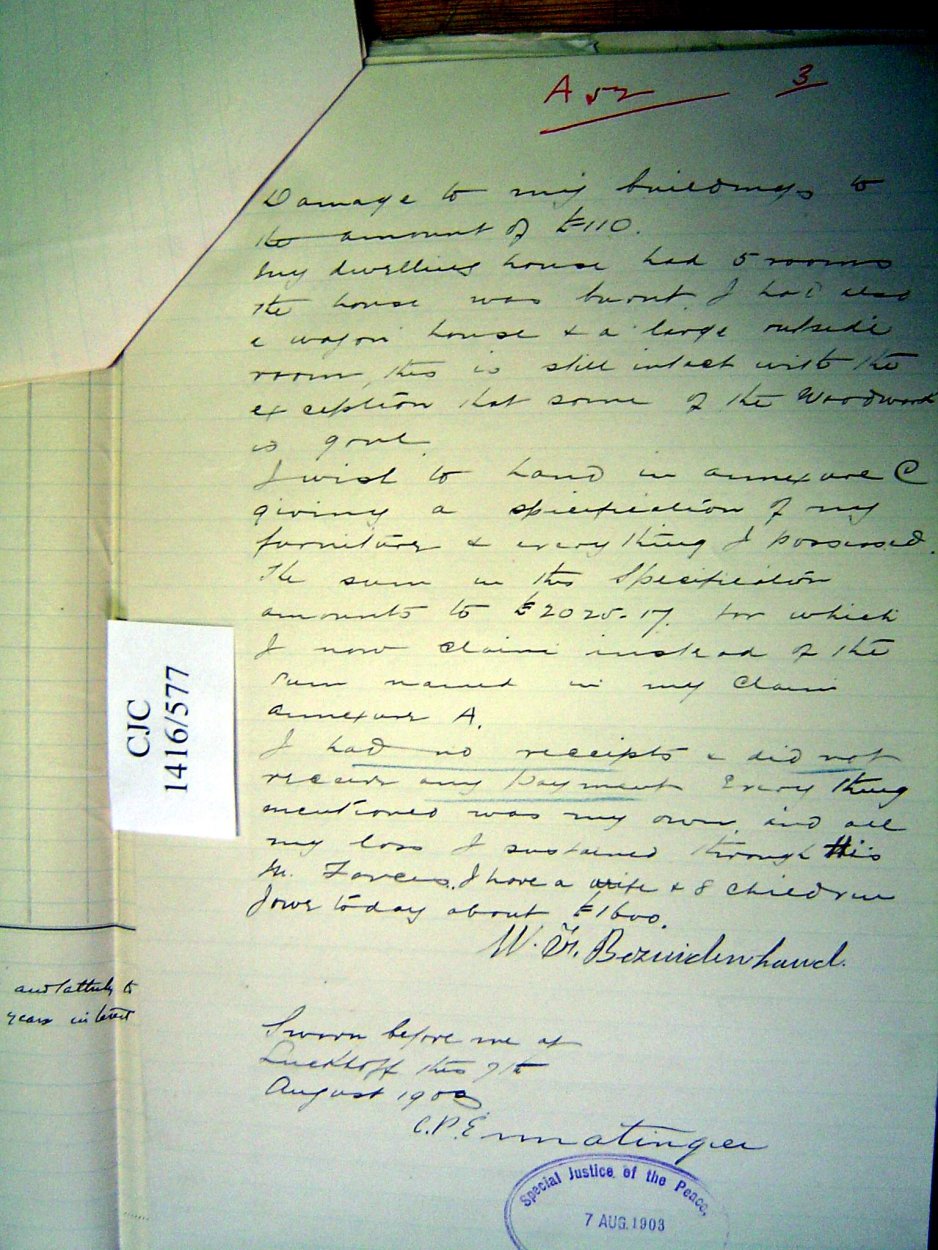 3
Damage to my buildings to
the amount of £110.
My dwelling house had 5 rooms
the house was burnt I had also
a wagon house & a large outside
room, this is still intact with the
exception that some of the Woodwork
is gone.
I wish to hand in annexure C
giving a specification of my
furniture & everything I possessed.
The sum in this Specification
amounts to £2025-17 for which
I now claim instead of the
sum named in my Claim
annexure A.
I had no receipts & did not
receive any payment Every thing
mentioned was my own and all
my loss I sustained through His
M. Forces. I have a wife & 8 children
I owe today about £1600.
W. J. Bezuidenhoud.
Sworn before me at
Luckhoff this 7th
August 1903
C.P. Ermatinger
Special Justice of the Peace,
7 AUG.1903
CJC
1416/577
to
years interest